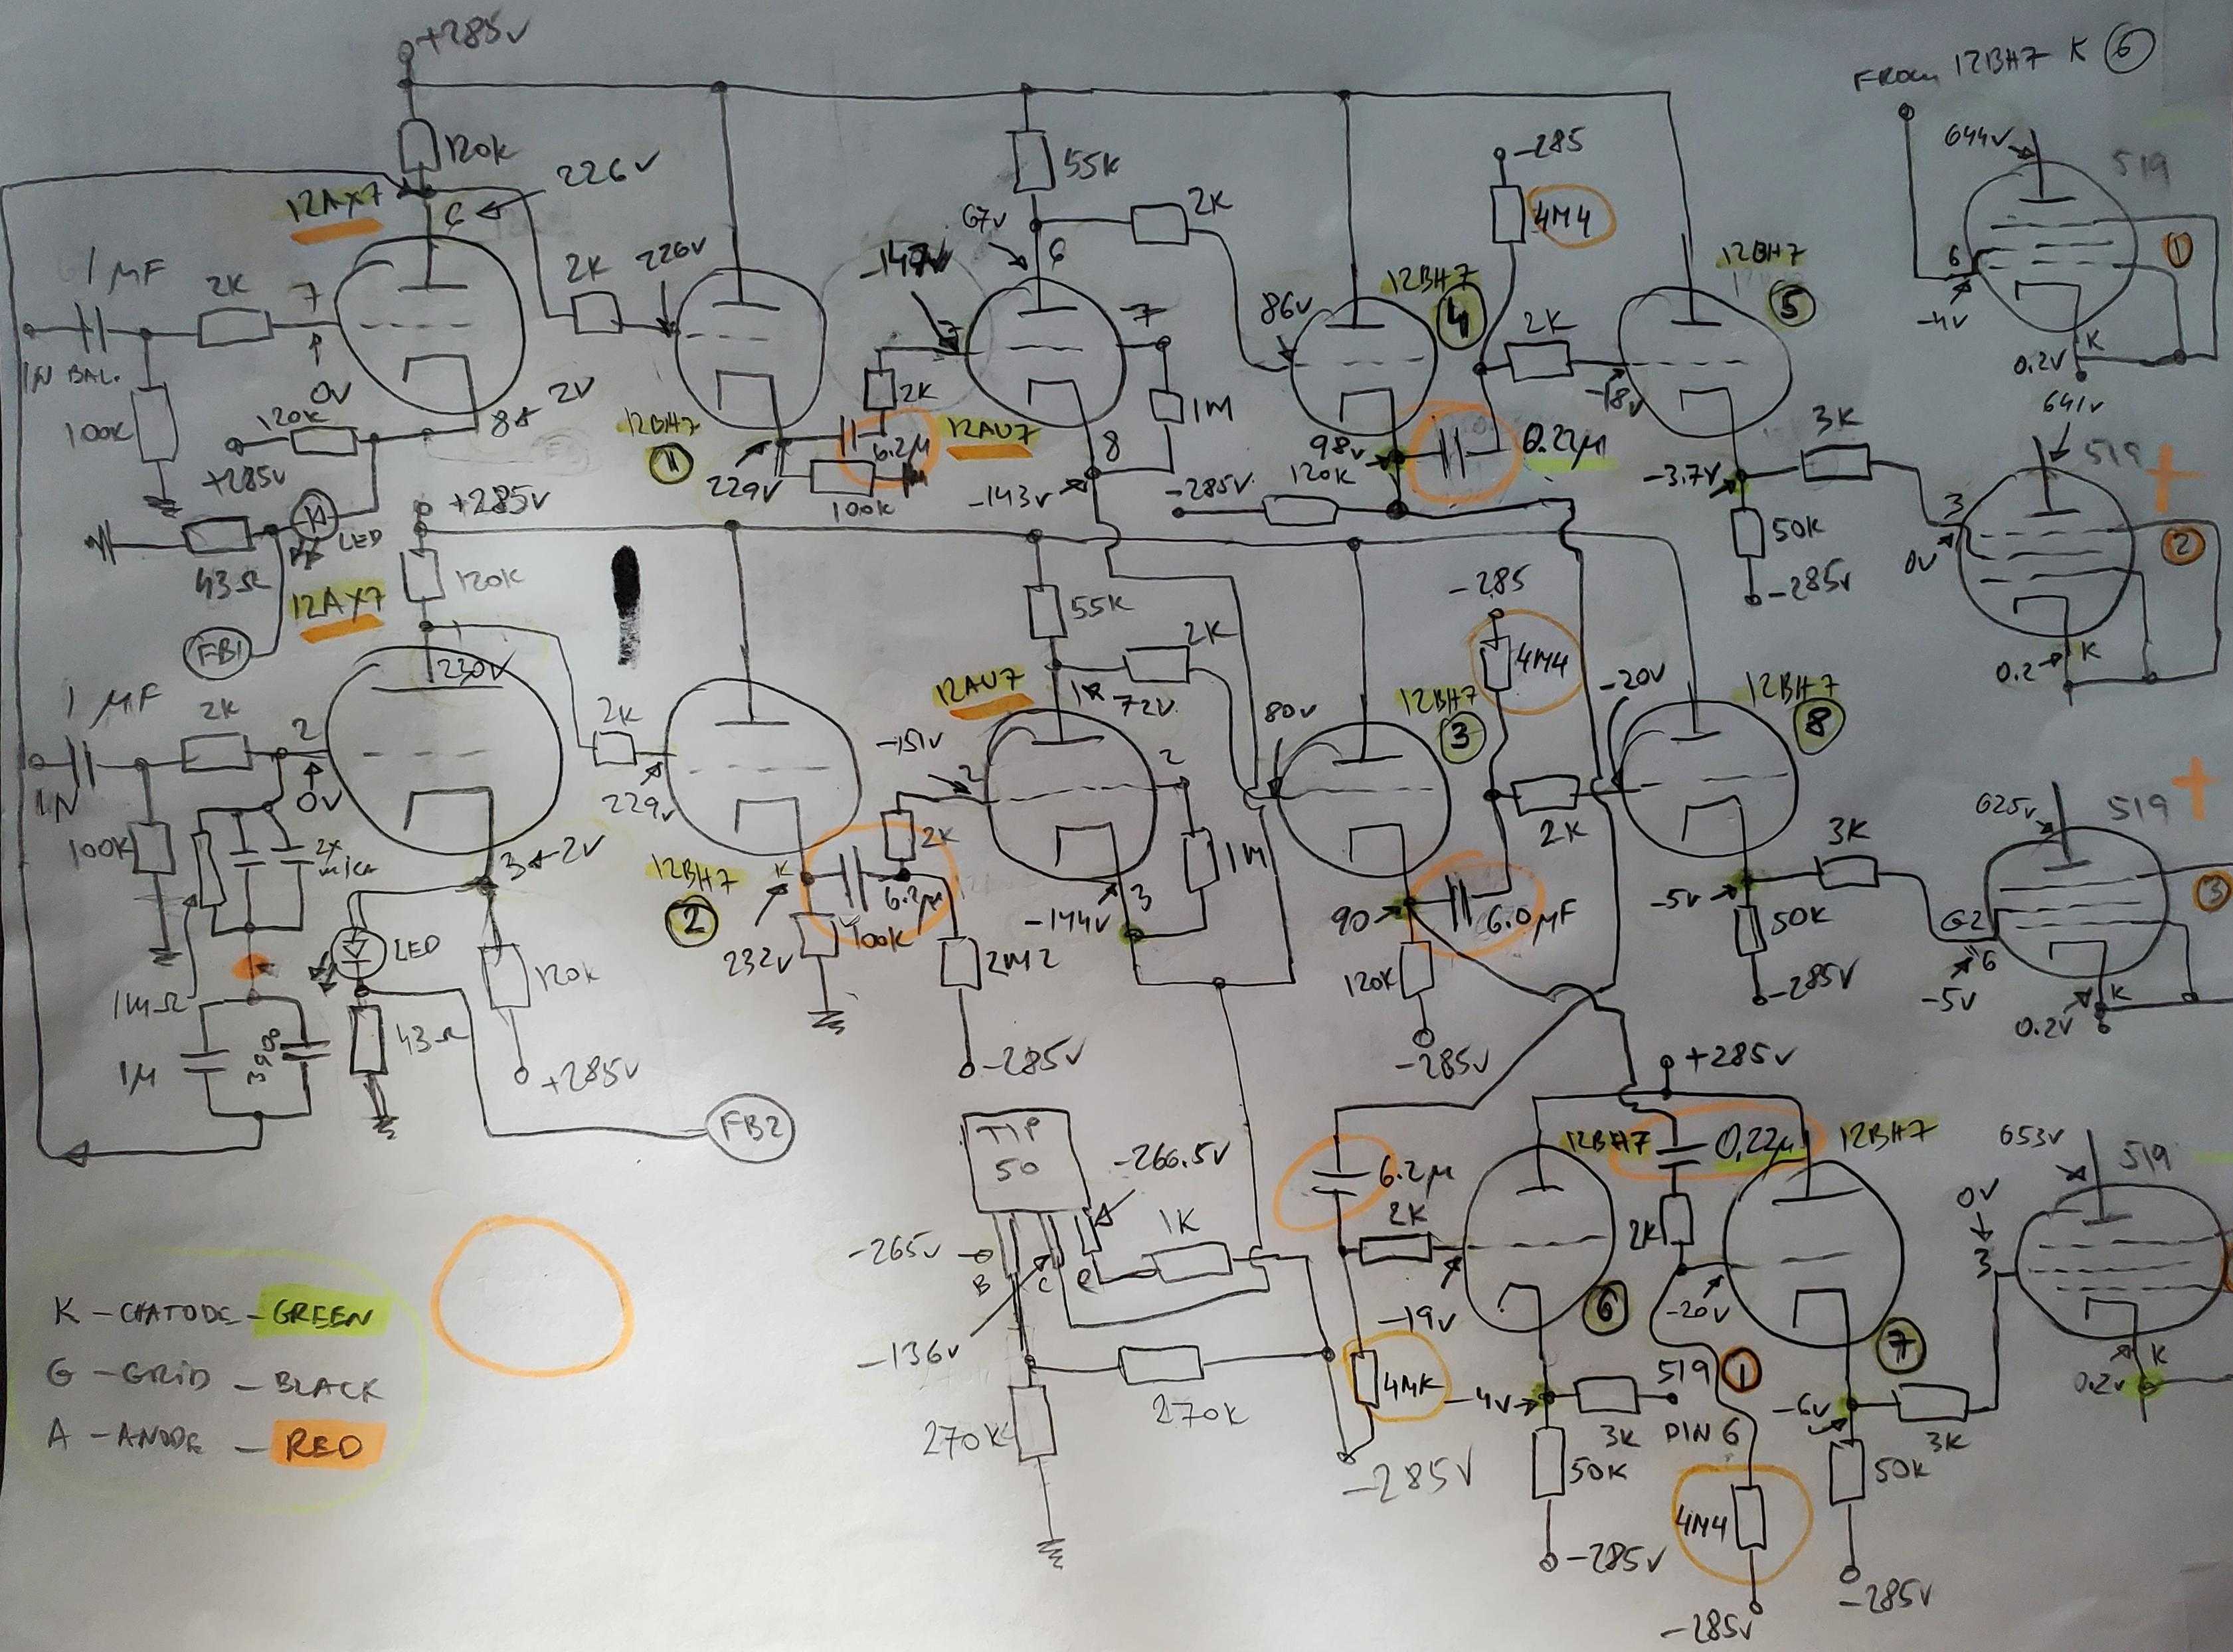 +285v
FROM 12BH7 K 6
120k
226v
12AX7
6
644v
519
1
6
-4v
K
0.2v
1 µF
2K
7
0V
IN BAL.
100k
120k
+285v
8
2V
43Ω
LED
FB1
2K
226v
12BH7
1
229v
100k
6.2µ
2K
-147v
7
55K
67v
6
7
1M
12AU7
8
-143v
2K
86v
12BH7
4
98v
120k
-285v
0.22µ
-285
4M4
2K
-18v
12BH7
5
-3.7v
3K
50K
-285v
641v
519
+
2
3
0v
K
0.2
+285v
120k
12AX7
230v
1 µF
2K
2
0v
IN
100K
2x
mica
1MΩ
1µ
390P
3
2v
LED
43Ω
120k
+285v
FB2
2K
229v
12BH7
2
K
232v
100k
6.2µ
2K
2M2
-285v
-151v
2
12AU7
55K
1
72v
2K
2
1M
3
-144v
80v
12BH7
3
90
6.0µF
120K
-285v
-285
4M4
2K
-20v
12BH7
8
-5v
3K
50K
-285v
625v
519
+
3
G2
6
-5v
K
0.2v
TIP
50
-266.5v
-265v
B
C
e
1K
-136v
270K
270k
-285v
6.2µ
2K
-19v
4MK
+285v
12BH7
6
-4v
3K
519 1
PIN 6
50K
-285v
0,22µ
2K
-20v
4M4
-285v
12BH7
7
-6v
3K
50K
-285v
653v
519
0v
3
K
0.2v
K - CHATODE - GREEN
G - GRID - BLACK
A - ANODE - RED